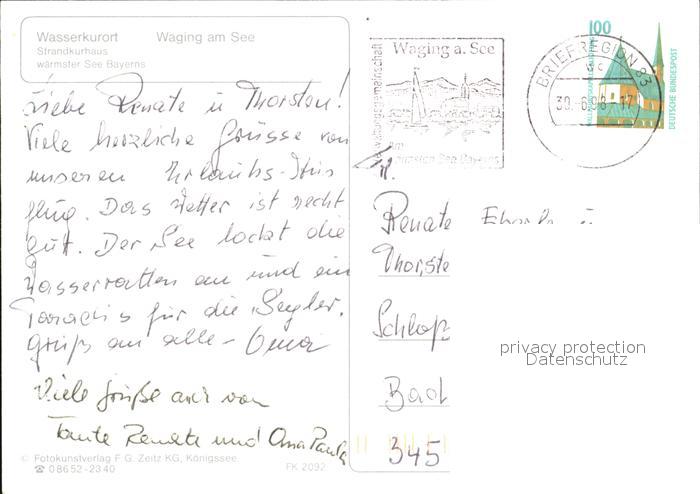 Wasserkurort Waging am See
Strandkurhaus
wärmster See Bayerns
Liebe Renate u Thorsten!
Viele herzliche Grüsse von
unseren Urlaubs-Aus
flug. Das Wetter ist recht
gut. Der See lockt die
Wasserratten an und ein
Paradis für die Segler.
Gruß an alle - Omi
Viele Grüße auch von
Tante Renate und Oma Paula
© Fotokunstverlag F. G. Zeitz KG, Königssee
☎ 08652-2340 FK 2092
Waging a. See
am
wärmsten See Bayerns
BRIEFREGION 83
30.-6.96-17
100
DEUTSCHE BUNDESPOST
Renate
Thorste
Schloß
Bad
345
privacy protection
Datenschutz